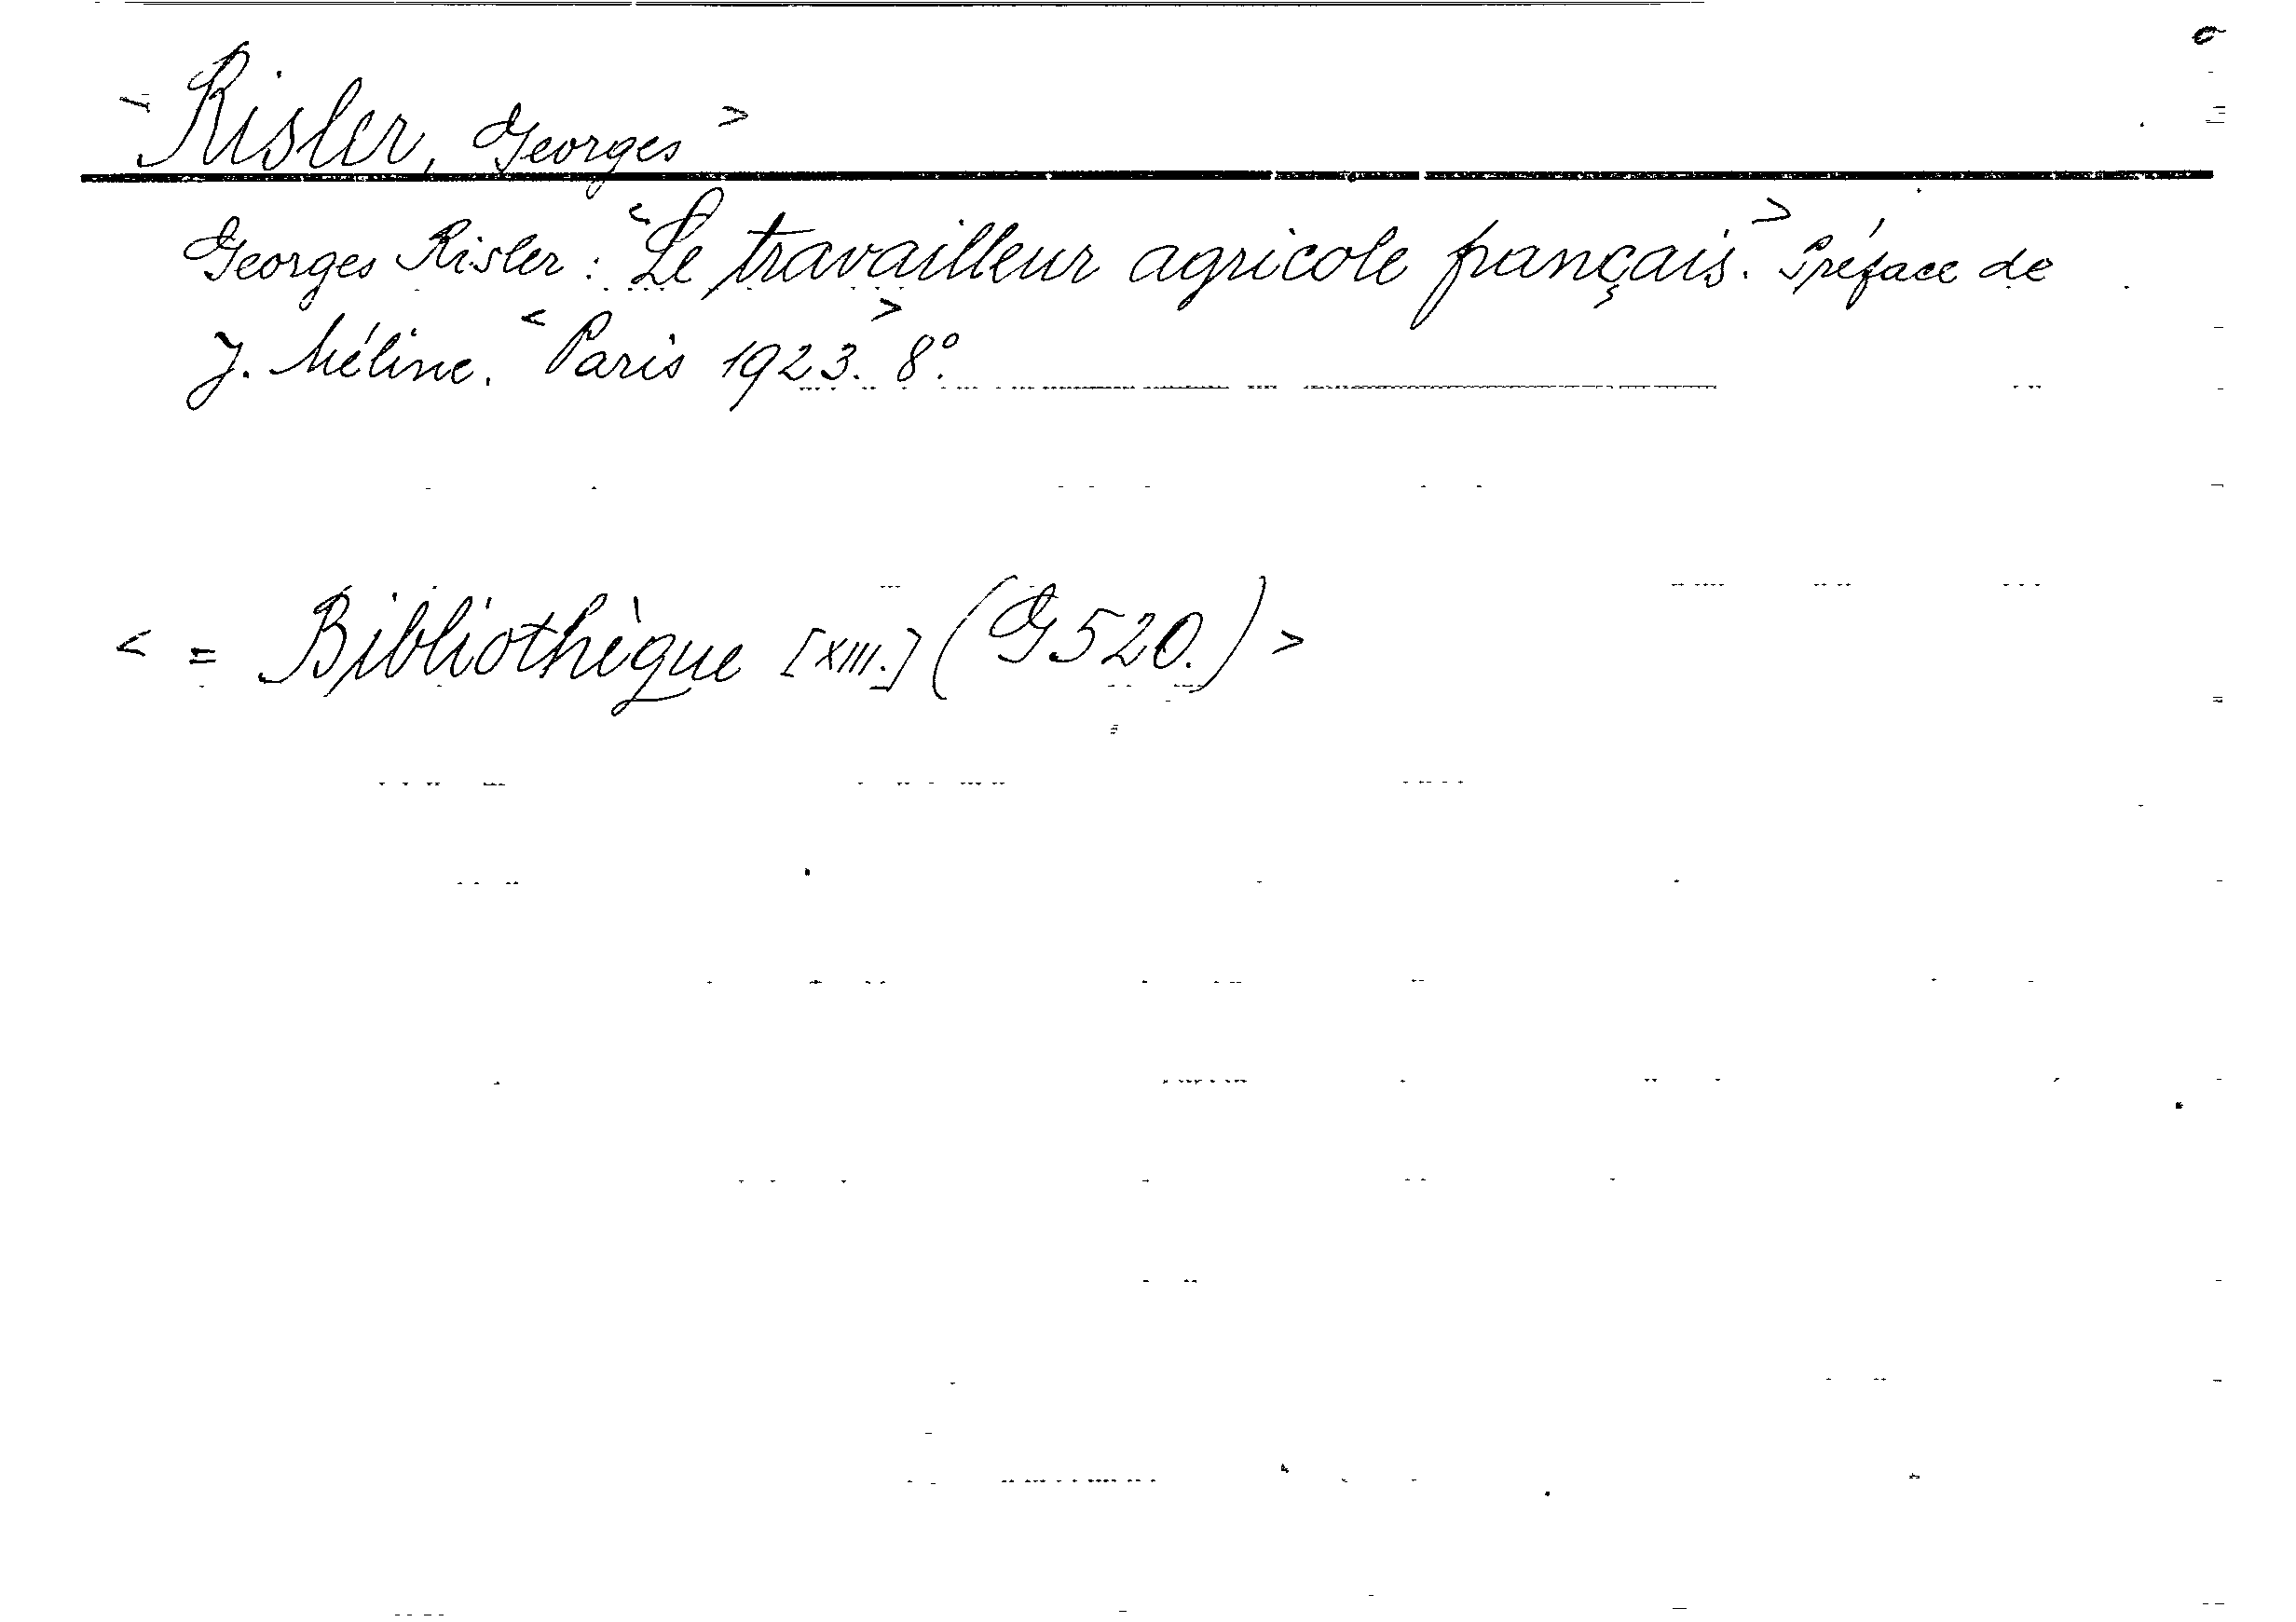 <Risler, Georges>
Georges Risler: <Le travailleur agricole français.> Préface de
J. Méline. <Paris 1923.> 8°.
< = Bibliothèque [XIII.] (G 520.) >